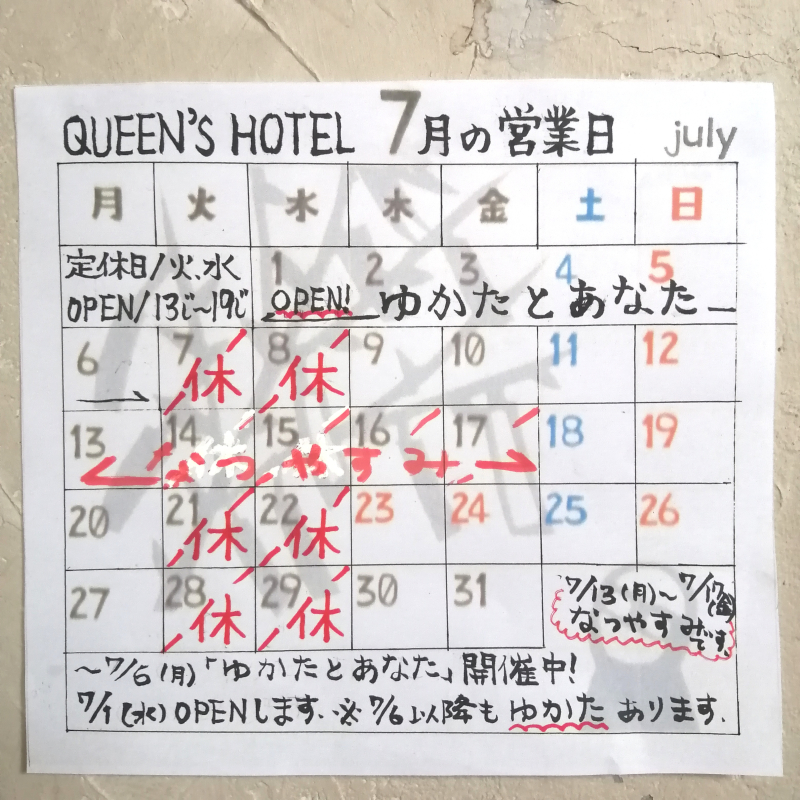 QUEEN'S HOTEL 7月の営業日 july
月 火 水 木 金 土 日
定休日/火、水 1 2 3 4 5
OPEN/13じ〜19じ OPEN! ゆかたとあなた
6 7 8 9 10 11 12
休 休
13 14 15 16 17 18 19
なつやすみ
20 21 22 23 24 25 26
休 休
27 28 29 30 31
休 休
7/13(月)〜7/17(金)
なつやすみです。
〜7/6(月)「ゆかたとあなた」開催中!
7/1(水)OPENします。※7/6以降もゆかたあります。